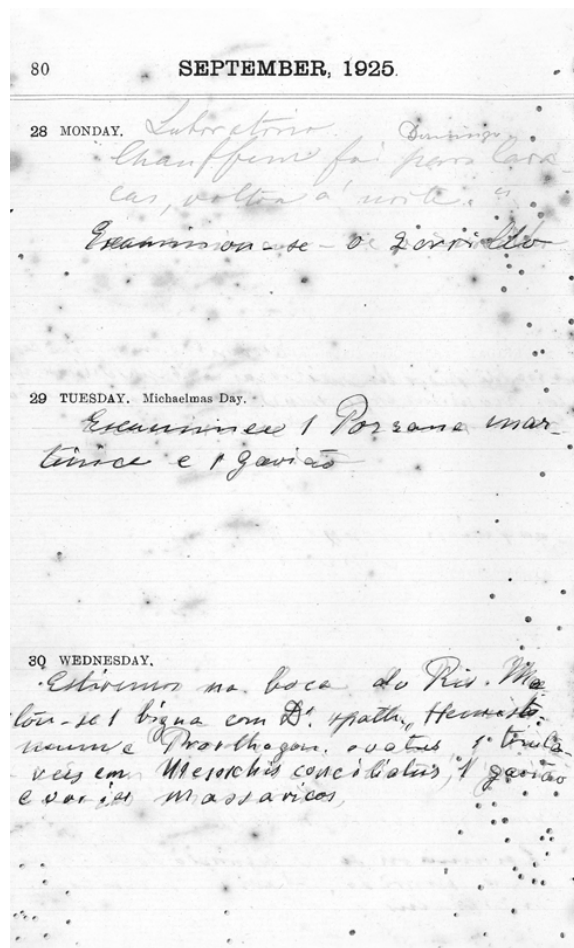 80 SEPTEMBER, 1925.
28 MONDAY. Laboratorio. Domingo.
Chauffeur foi para Cara-
cas, voltou á noite.
Examinou-se o zorrillo
29 TUESDAY. Michaelmas Day.
Examinei 1 Porzana mar-
tinica e 1 gavião
30 WEDNESDAY.
Estivemos na boca do Rio. Ma
tou-se 1 bigua com D. spath.,
e ovatus 1
veis em Mesorchis conciliatus, 1 gavião
e varios massaricos,